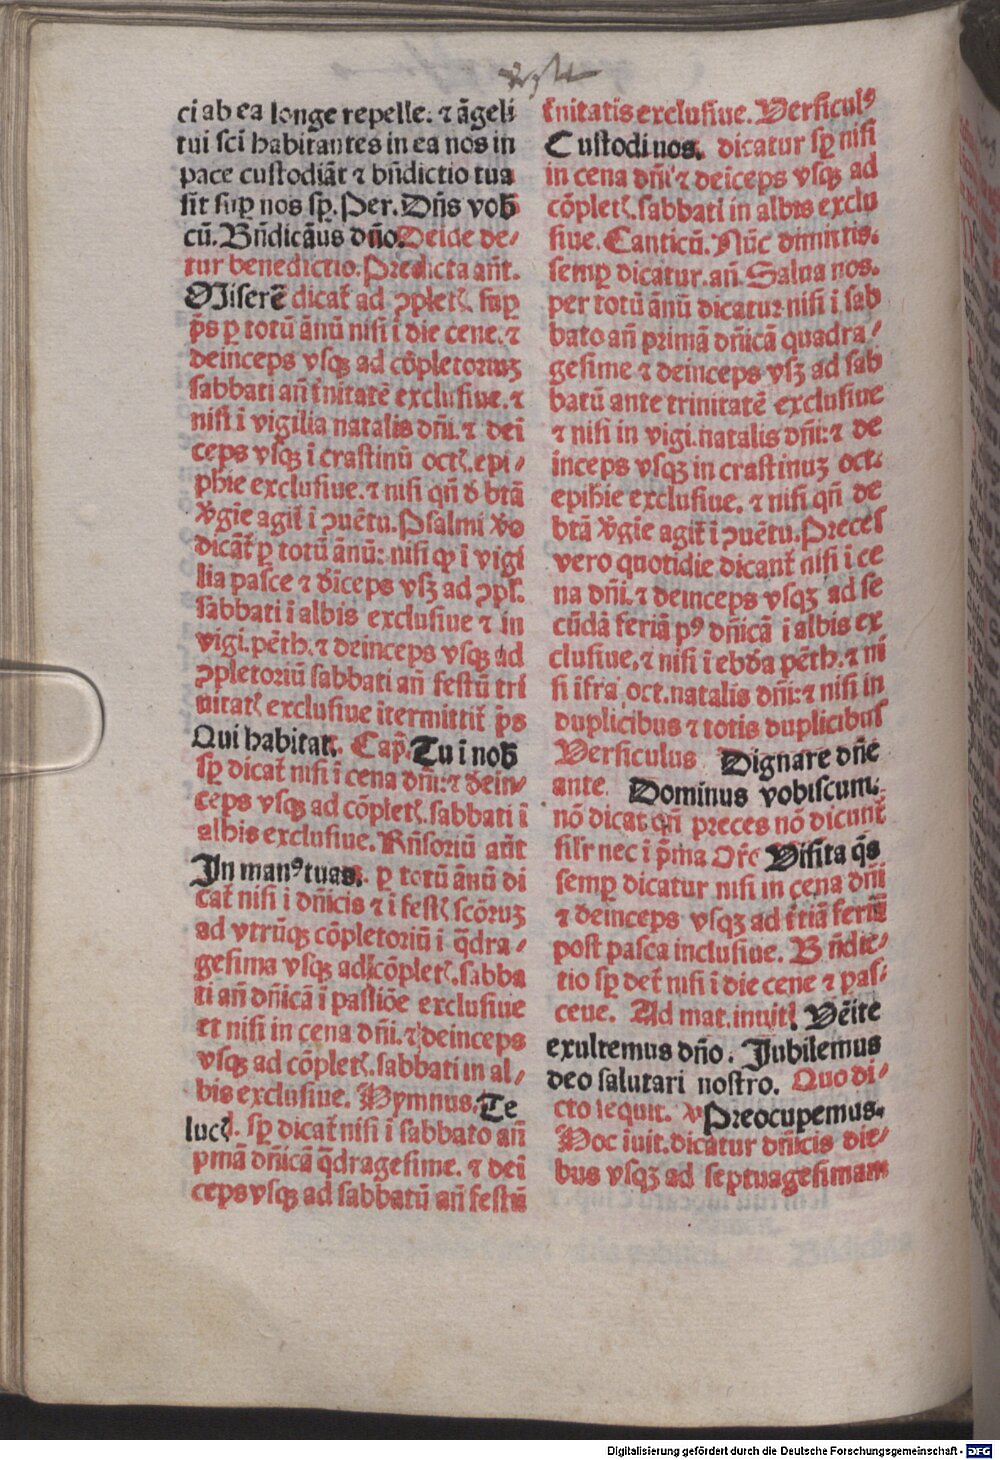 ci ab ea longe repelle. ⁊ āgeli
tui sci̅ habitantes in ea nos in
pace custodiāt ⁊ bn̄dictio tua
sit sup̲ nos sp̲. Per. Dn̄s vob̄
cū. Bn̄dicam̄us dn̄o. Deide de⸗
tur benedictio. Predicta an̄t.
Miserē dicat̄ ad ꝯpletꝭ sup̲
p̄s p̲ totū ānū nisi ī die cene. ⁊
deinceps vsqꝫ ad cōpletoriuꝫ
sabbati an̄ t̄nitatē exclusiue. ⁊
nisi ī vigilia natalis dn̄i. ⁊ dei̅
ceps vsqꝫ ī crastinū octꝭ. epi⸗
phie exclusiue. ⁊ nisi qn̄ d̄ btā
v̄gīe agit̄ ī ꝯuētu. Psalmi vo
dicāt̄ p̲ totū ānū: nisi qꝫ ī vigi
lia pasce ⁊ d̄iceps vsꝫ ad ꝯpꝭ.
sabbati ī albis exclusiue ⁊ in
vigi. pēth. ⁊ deinceps vsqꝫ ad
ꝯpletoriū sabbati an̄ festū tri
nitatꝭ exclusiue ītermittit̄ p̄s
Qui habitat. Cap̄. Tu ī nob̄
sp̲ dicat̄ nisi ī cena dn̄i: ⁊ d̄ein⸗
ceps vsqꝫ ad cōpletꝭ. sabbati ī
albis exclusiue. Rn̄soriū an̄t
In manꝰ tuas. p̲ totū ānū di
cat̄ nisi ī dn̄icis ⁊ ī festꝭ scōruꝫ
ad vtrūqꝫ cōpletoriū ī q̄dra⸗
gesima vsqꝫ ad cōpletꝭ. sabba
ti an̄ dn̄icā ī passiōe exclusiue
et nisi in cena dn̄i. ⁊ deinceps
vsqꝫ ad cōpletꝭ. sabbati in al⸗
bis exclusiue. Hymnus. Te
lucꝭ. sp̲ dicat̄ nisi ī sabbato an̄
pmā dn̄icā q̄dragesime. ⁊ dei̅
ceps vsqꝫ ad sabbatū an̄ festū
t̄nitatis exclusiue. Versiculꝰ
Custodi nos. dicatur sp̲ nisi
in cena dn̄i ⁊ dei̅ceps vsqꝫ ad
cōpletꝭ. sabbati in albis exclu
siue. Canticū. Nūc dimittis.
semp̲ dicatur. an̄. Salua nos.
per totū ānū dicatur nisi ī sab
bato an̄ primā dn̄icā quadra⸗
gesime ⁊ deinceps vsꝫ ad sab
batū ante trinitatē exclusiue
⁊ nisi in vigi. natalis dn̄i: ⁊ de
inceps vsqꝫ in crastinuꝫ oct.
epih̄ie exclusiue. ⁊ nisi qn̄ de
btā v̄gīe agit̄ ī ꝯuētu. Preces
vero quotidie dicant̄ nisi ī ce
na dn̄i. ⁊ deinceps vsqꝫ ad se
cūdā feriā pꝰ dn̄icā ī albis ex
clusiue. ⁊ nisi ī ebd̄a pēth. ⁊ ni
si īfra oct. natalis dn̄i: ⁊ nisi in
duplicibus ⁊ totis duplicibus
Versiculus Dignare dn̄e
ante Dominus vobiscum.
nō dicat̄ qn̄ preces nō dicunt̄
silr nec ī p̄ma Or̄e Visita q̄s
semp̲ dicatur nisi in cena dn̄i
⁊ deinceps vsqꝫ ad t̄tiā feriā
post pasca inclusiue. Bn̄dic⸗
tio sp̲ det̄ nisi ī die cene ⁊ pas⸗
ceue. Ad mat. inuitꝭ. Vēite
exultemus dn̄o. Jubilemus
deo salutari nostro. Quo di⸗
cto sequit̄. v̄ Preocupemus.
Hoc iuit. dicatur dn̄icis die⸗
bus vsqꝫ ad septuagesimam
Digitalisierung gefördert durch die Deutsche Forschungsgemeinschaft - DFG